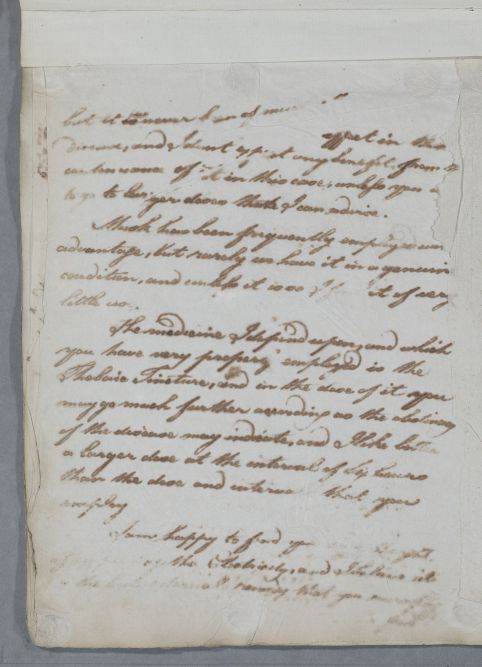 but it is never been of much
effect in this
Disease, and I do not expect any benefit from a
continuance of it in this case, unless you
to go to larger doses than I can advise.
Musk has been frequently employed with
advantage, but rarely we have it in a genuine
condition, and unless it is so I find it of very
little use.
The medicine I depend upon, and which
you have very properly employed is the
Thebaic Tincture, and in the dose of it you
may go much further according as the obstinacy
of the disease may indicate, and I like better
a larger dose at the interval of six hours
than the dose and interval that you
employ
I am happy to find you
the Electricity, and I believe it
the remedy that you